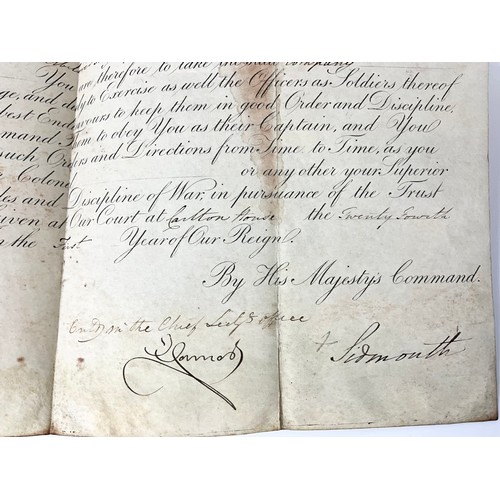 are therefore to take the said Company
You
ge, and duly to Exercise as well the Officers as Soldiers thereof
best Endeavours to keep them in good Order and Discipline.
mmand Them to obey You as their Captain, and You
such Orders and Directions from Time to Time, as you
Colonel or any other your Superior
les and Discipline of War, in pursuance of the Trust
Given at Our Court at Carlton House the Twenty Fourth
in the First Year of Our Reign.
By His Majesty's Command.
in the Chief
Sidmouth